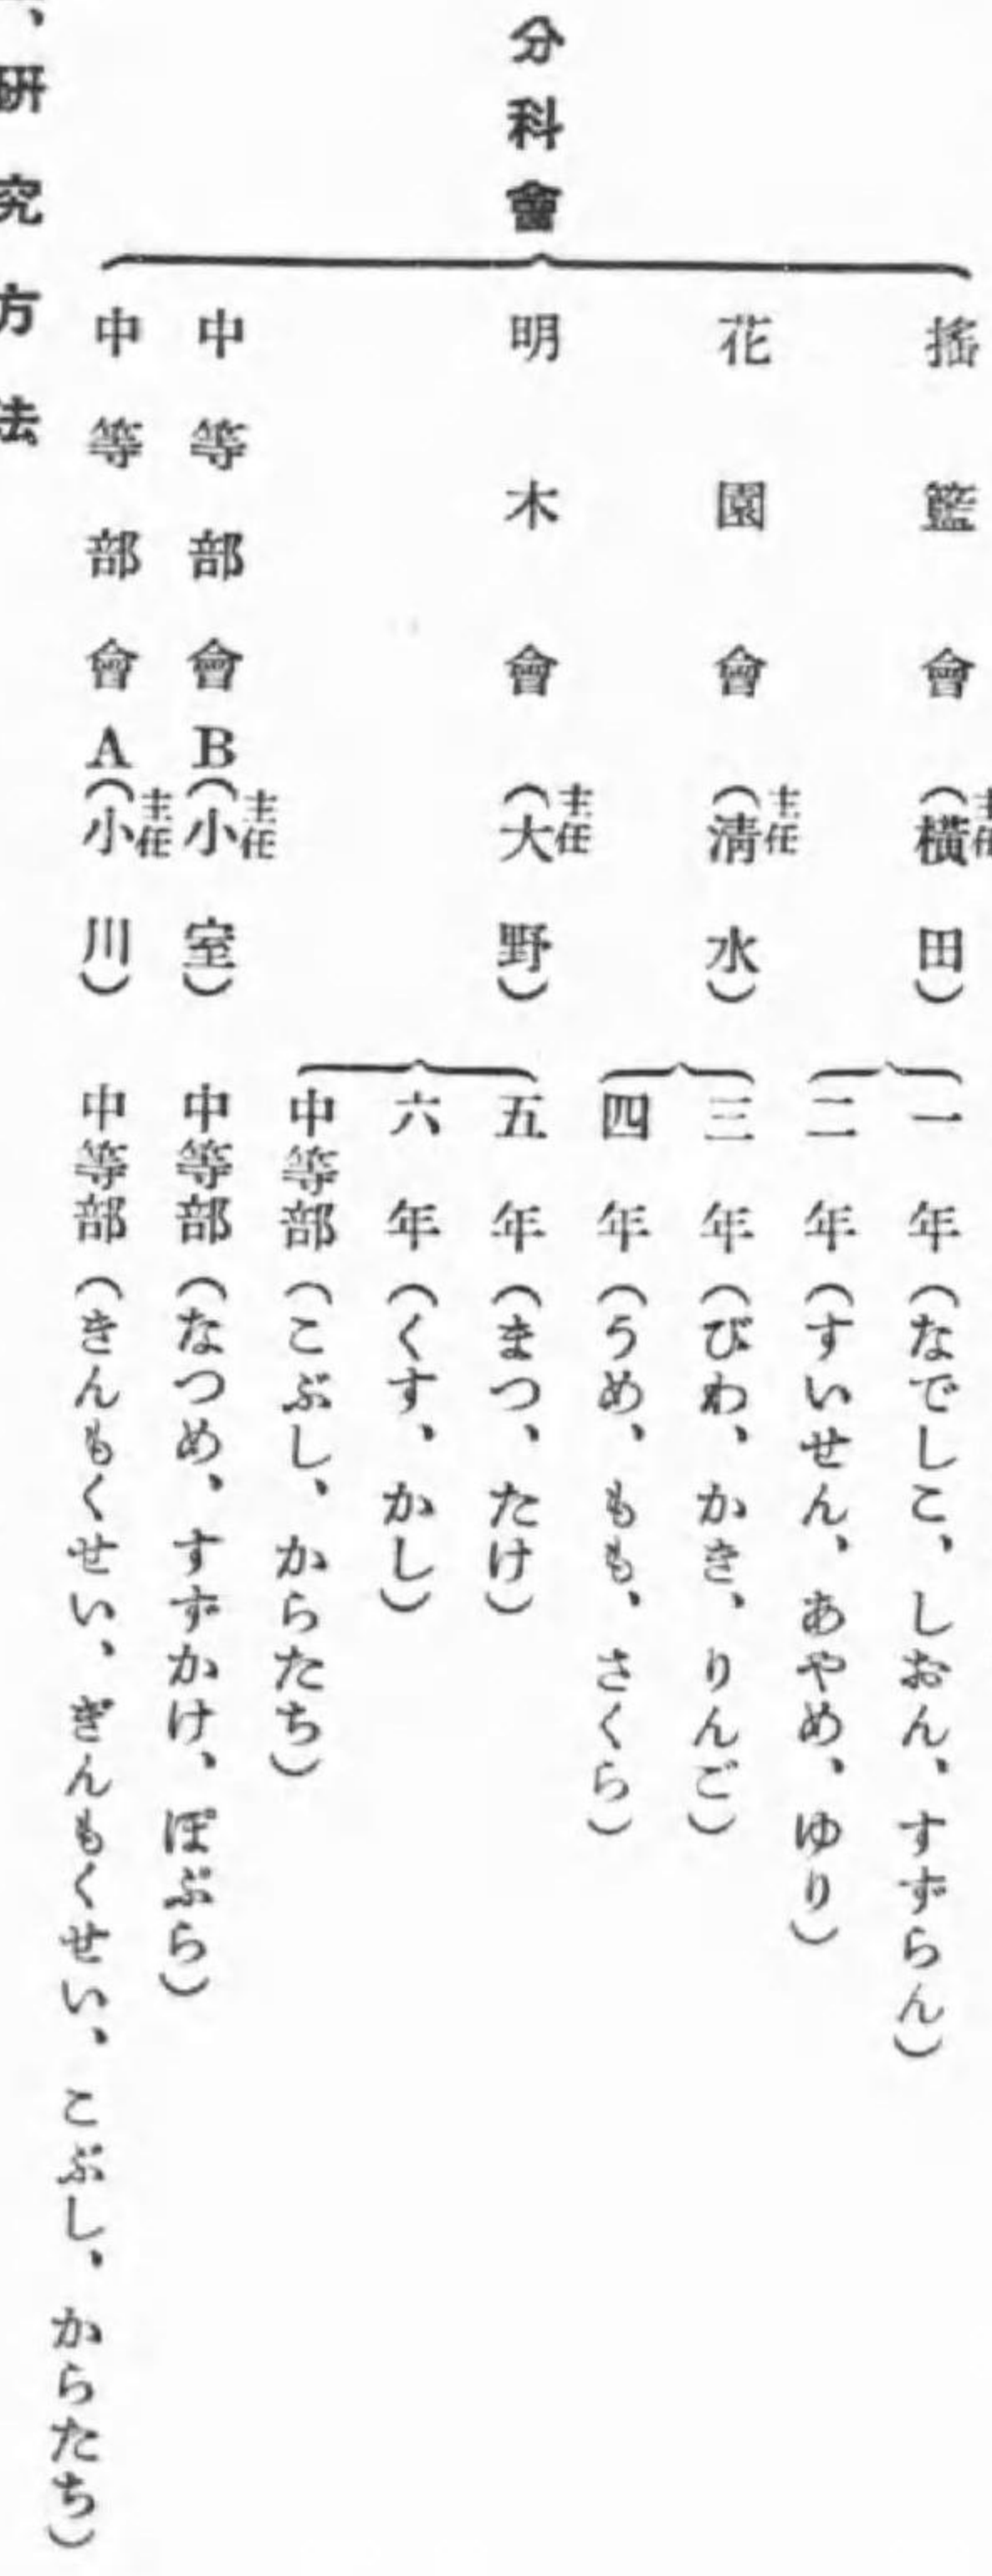 分科會
搖籃會(主任橫田)
一年(なでしこ、しおん、すずらん)
二年(すいせん、あやめ、ゆり)
花園會(主任淸水)
三年(びわ、かき、りんご)
四年(うめ、もも、さくら)
明木會(主任大野)
五年(まつ、たけ)
六年(くす、かし)
中等部(こぶし、からたち)
中等部會B(主任小室)
中等部(なつめ、すずかけ、ぽぷら)
中等部會A(主任小川)
中等部(きんもくせい、ぎんもくせい、こぶし、からたち)
、研究方法